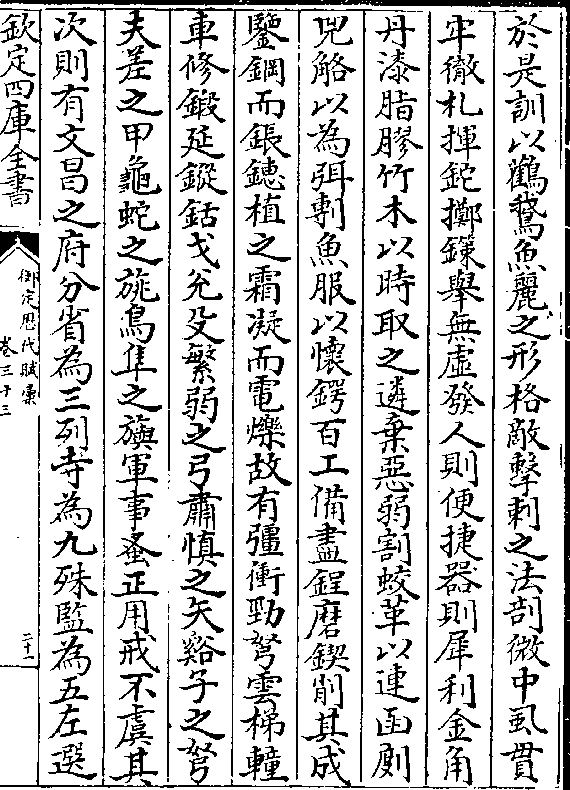 於是訓以鸛鵞魚麗之形格敵擊刺之法剖微中虱貫
牢徹札揮鉈擲𨰎舉無虛發人則便捷器則犀利金角
丹漆脂膠竹木以時取之遴棄惡弱割蛟革以連函剫
兕觡以為弭剸魚服以懷鍔百工備盡鋥磨鍥削其成
鑒鋼而鋹鏓植之霜凝而電爍故有彊衝勁弩雲梯轒
車修鍜延鏦銛戈兊殳繁弱之弓肅慎之矢谿子之弩
夫差之甲龜蛇之旐鳥隼之旟軍事蚤正用戒不虞其
次則有文昌之府分省為三列寺為九殊監為五左選
欽定四庫全書
御定歴代賦彙
卷三十三
二十一